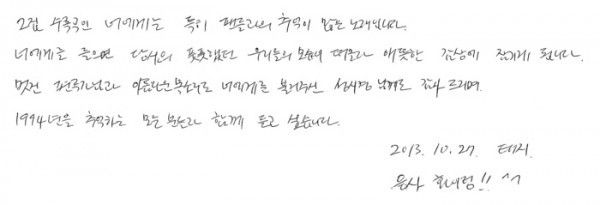 2집 수록곡인 너에게는 특히 팬들과의 추억이 많은 노래입니다.
너에게를 들으면 당시의 풋풋했던 우리들의 모습이 떠올라 애틋한 감상에 잠기게 됩니다.
멋진 편곡가님과 아름다운 목소리로 너에게를 불러주신 성시경님께도 감사 드리며.
1994년을 추억하는 모든 분들과 함께 듣고 싶습니다.
2013. 10. 27. 태지.
응사 화이팅!! ^^